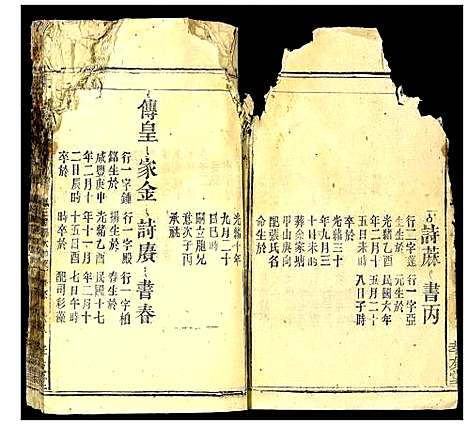 詩蔴
行二字蓮
生生於
光緒乙酉
年二月十
五日未時
卒於
光緒三十
年九月三
十日未時
葬余家塘
甲山庚向
配張氏名
命生於
書丙
行一字亞
元生於
民國六年
五月二十
八日子時
光緒十年
九月二十
日巳時
嗣立胞兄
意次子丙
承祧
傳皇
家金
行一字鍾
銘生於
咸豐庚申
年二月十
二日辰時
卒於
詩賡
行一字殿
颺生於
光緒乙酉
年十一月
十五日酉
時卒於
書春
行一字柏
春生於
民國十七
年二月十
七日午時
配司彩藻